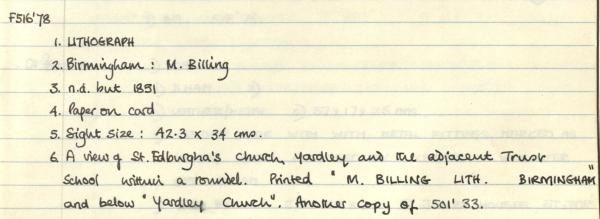 F516'78
1. LITHOGRAPH
2. Birmingham : M. Billing
3. n.d. but 1851
4. Paper on card
5. Sight size : 42.3 x 34 cms.
6. A view of St. Edburgha's Church, Yardley and the adjacent Trust
School within a roundel. Printed "M. BILLING LITH. BIRMINGHAM"
and below "Yardley Church". Another copy of 501'33.